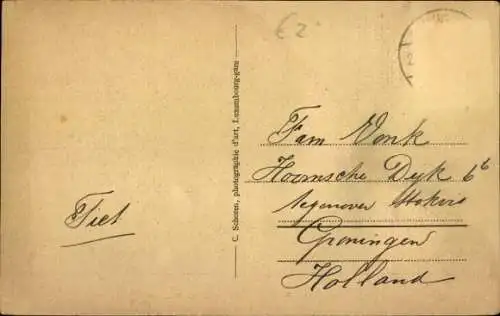 €2
Tiet
C. Schoren, photographie d'art, Luxembourg-gare
Fam Vonk
Hoornsche Dyk 6b
tegenover Stokvis
Groningen
Holland